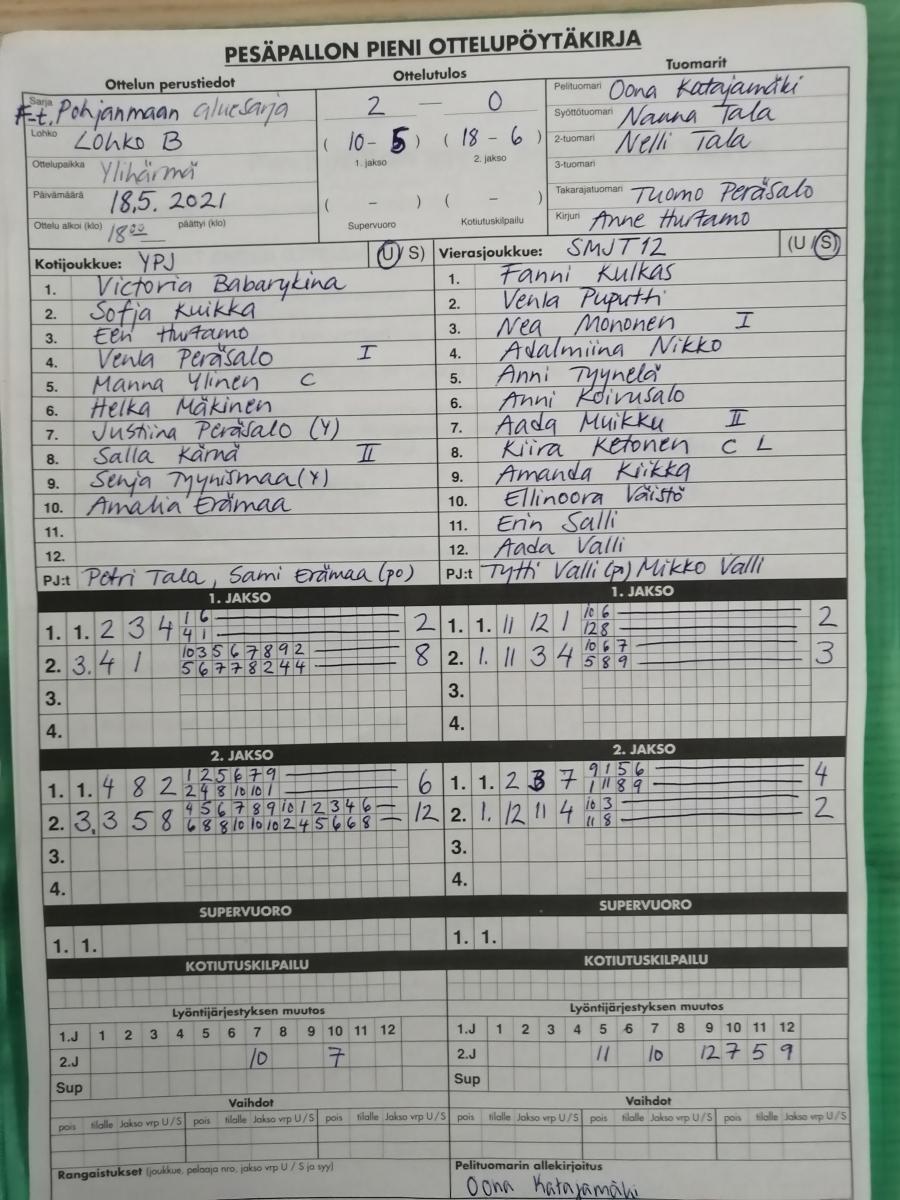 PESÄPALLON PIENI OTTELUPÖYTÄKIRJA
Ottelun perustiedot Ottelutulos Tuomarit
Sarja F-t. Pohjanmaan aluesarja
Lohko Lohko B
Ottelupaikka Ylihärmä
Päivämäärä 18.5. 2021
Ottelu alkoi (klo) 18 00 päättyi (klo)
2 — 0
( 10 - 5 ) ( 18 - 6 )
1. jakso 2. jakso
( - ) ( - )
Supervuoro Kotiutuskilpailu
Pelituomari Oona Katajamäki
Syöttötuomari Nanna Tala
2-tuomari Nelli Tala
3-tuomari
Takarajatuomari Tuomo Peräsalo
Kirjuri Anne Hurtamo
Kotijoukkue: YPJ (U/S)
1. Victoria Babarykina
2. Sofja Kuikka
3. Eeri Hurtamo
4. Venla Peräsalo I
5. Manna Ylinen C
6. Helka Mäkinen
7. Justiina Peräsalo (Y)
8. Salla Kärnä II
9. Senja Tyynismaa (Y)
10. Amalia Erämaa
11.
12.
PJ:t Petri Tala, Sami Erämaa (po)
Vierasjoukkue: SMJT12 (U/S)
1. Fanni Kulkas
2. Venla Puputti
3. Nea Mononen I
4. Adalmiina Nikko
5. Anni Tyynelä
6. Anni Koivusalo
7. Aada Muikku II
8. Kiira Ketonen C L
9. Amanda Kiikka
10. Ellinoora Väistö
11. Erin Salli
12. Aada Valli
PJ:t Tytti Valli (p) Mikko Valli
1. JAKSO
1. 1. 2 3 4 1 6 2
4 1
2. 3. 4 1 10 3 5 6 7 8 9 2 8
5 6 7 7 8 2 4 4
3.
4.
1. JAKSO
1. 1. 11 12 1 10 6 2
12 8
2. 1. 11 3 4 10 6 7 3
5 8 9
3.
4.
2. JAKSO
1. 1. 4 8 2 1 2 5 6 7 9 6
2 4 8 10 10 1
2. 3. 3 5 8 4 5 6 7 8 9 10 1 2 3 4 6 12
6 8 8 10 10 10 2 4 5 6 6 8
3.
4.
2. JAKSO
1. 1. 2 3 7 9 1 5 6 4
1 11 8 9
2. 1. 12 11 4 10 3 2
11 8
3.
4.
SUPERVUORO SUPERVUORO
1. 1. 1. 1.
KOTIUTUSKILPAILU KOTIUTUSKILPAILU
Lyöntijärjestyksen muutos Lyöntijärjestyksen muutos
1.J 1 2 3 4 5 6 7 8 9 10 11 12 1.J 1 2 3 4 5 6 7 8 9 10 11 12
2.J 10 7 2.J 11 10 12 7 5 9
Sup Sup
Vaihdot Vaihdot
pois tilalle Jakso vrp U/S pois tilalle Jakso vrp U/S pois tilalle Jakso vrp U/S pois tilalle Jakso vrp U/S pois tilalle Jakso vrp U/S pois tilalle Jakso vrp U/S
Rangaistukset (joukkue, pelaaja nro, jakso vrp U / S ja syy) Pelituomarin allekirjoitus
Oona Katajamäki